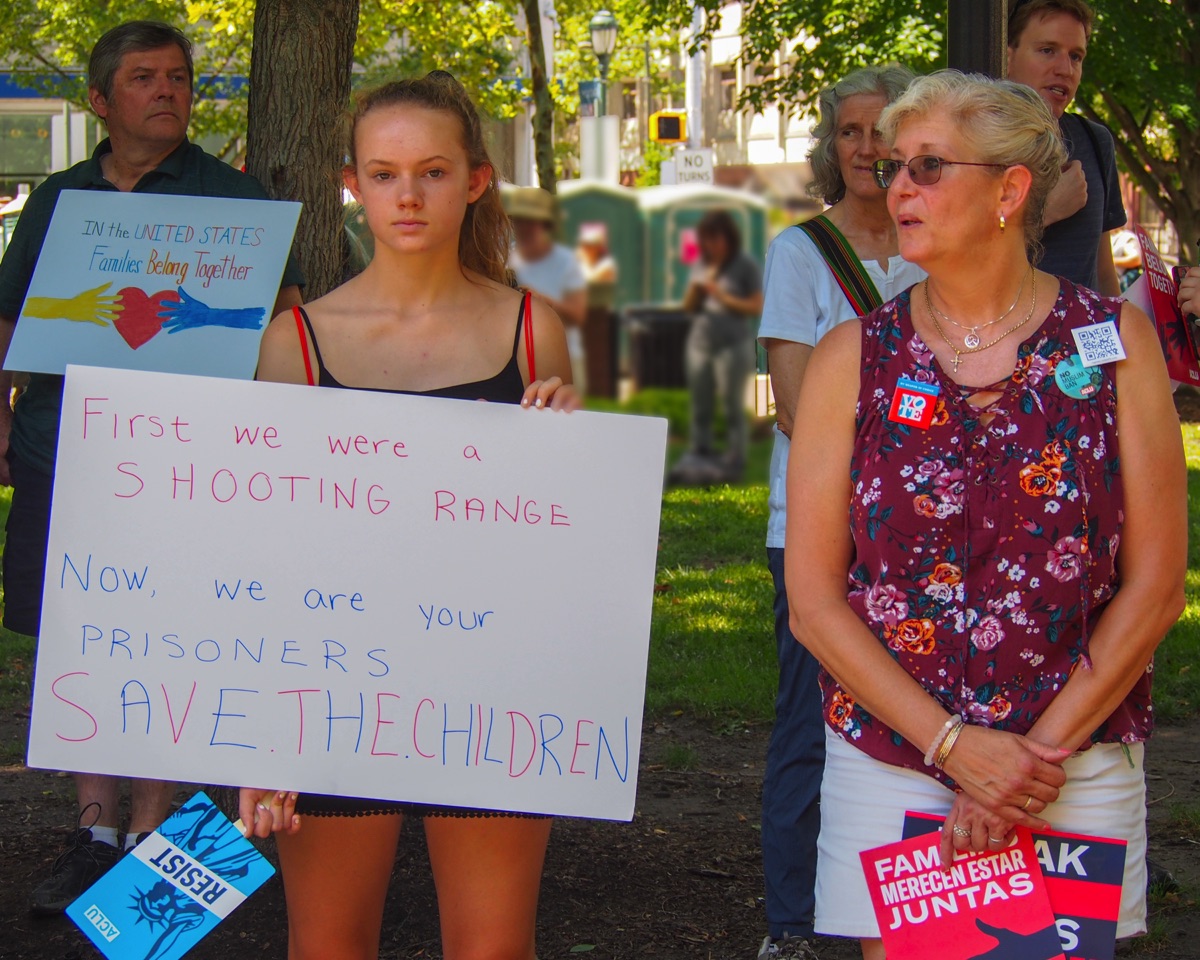 IN the UNITED STATES
Families Belong Together
First we were a
SHOOTING RANGE
Now, we are your
PRISONERS
SAVE.THE.CHILDREN
RESIST
ACLU
NO
TURNS
VOTE
NO
MUSLIM
BAN
ACLU
FAMILIAS
MERECEN ESTAR
JUNTAS
AK
S